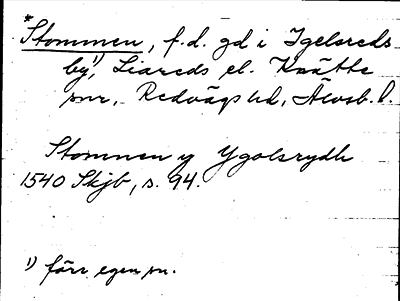 *Stommen, f.d. gd i Igelsreds
by,¹) Liareds el. Knätte
snr, Redvägs hd, Älvsb. l.
Stommen y Ygolsrydh
1540 Skjb, s. 94.
¹) förr egen sn.